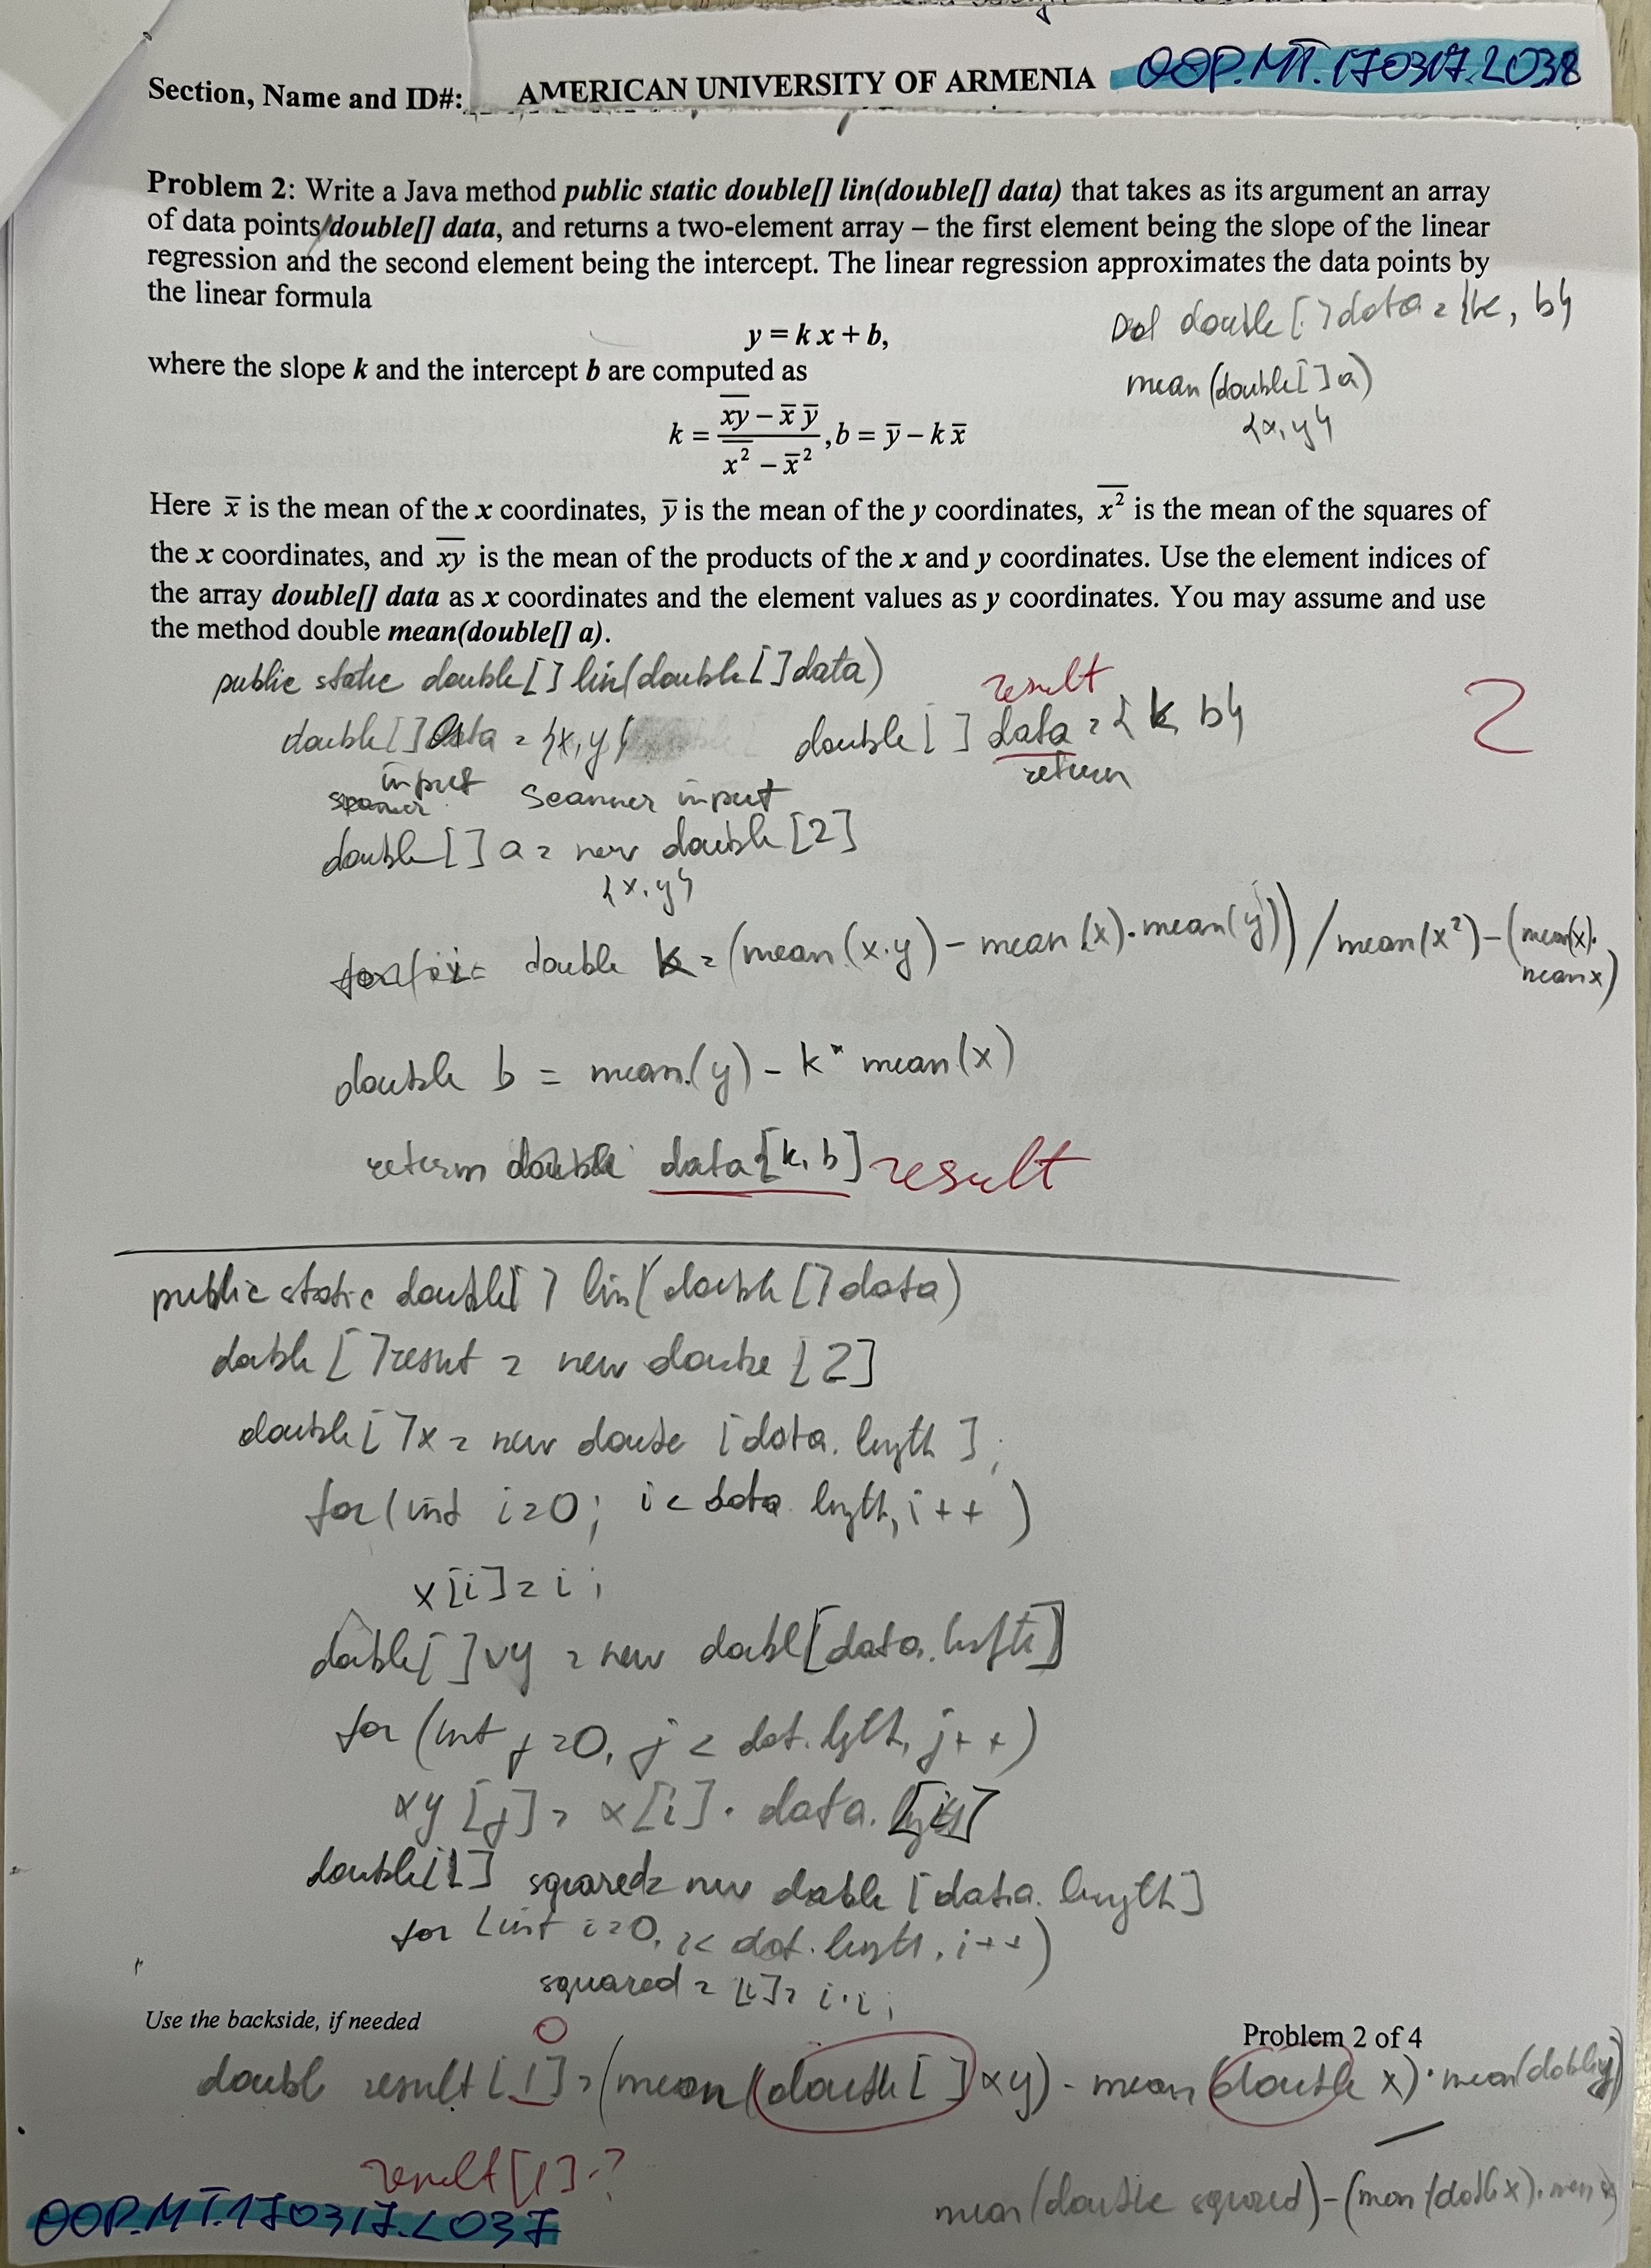 Section, Name and ID#: AMERICAN UNIVERSITY OF ARMENIA OOP.MT.170317.L038
Problem 2: Write a Java method public static double[] lin(double[] data) that takes as its argument an array
of data points/double[] data, and returns a two-element array – the first element being the slope of the linear
regression and the second element being the intercept. The linear regression approximates the data points by
the linear formula
double[]data = {k, b}
y = k x + b,
mean(double[] a)
where the slope k and the intercept b are computed as
{x, y}
k = (\overline{xy} – x̄ ȳ) / (\overline{x²} – x̄²), b = ȳ – k x̄
Here x̄ is the mean of the x coordinates, ȳ is the mean of the y coordinates, \overline{x²} is the mean of the squares of
the x coordinates, and \overline{xy} is the mean of the products of the x and y coordinates. Use the element indices of
the array double[] data as x coordinates and the element values as y coordinates. You may assume and use
the method double mean(double[] a).
public static double[] lin(double[] data)
result
2
double[] data = {x, y} double[] data = {k b}
input return
scanner scanner input
double[] a = new double[2]
{x, y}
for(i= double k = (mean(x·y) - mean(x)·mean(y)) / mean(x²) - (mean(x)·
mean x)
double b = mean(y) - k* mean(x)
return double data[k, b] result
public static double[] lin(double[] data)
double[] result = new double[2]
double[] x = new double [data.length];
for(int i=0; i< data.length, i++)
x[i]=i;
double[] xy = new doubl[data.length]
for (int j=0, j < dat.lgth, j++)
xy[j] = x[i] · data.[i]
double[] squared = new double [data.length]
for (int i=0, i< dat.length, i++)
squared = [i] = i·i;
Use the backside, if needed
0
Problem 2 of 4
doubl result[1] = (mean(double[] xy) - mean(double x)·mean(double y)
result[1]=?
mean(double squared) - (mean(double x)·mean x)
OOP.MT.170317.L037